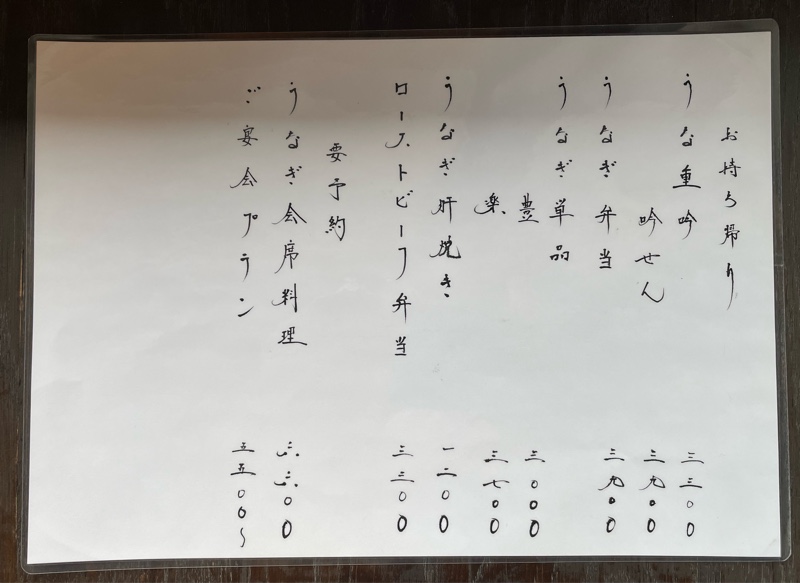 お持ち帰り
うな重吟 三三〇〇
吟せん 三九〇〇
うなぎ弁当 三九〇〇
うなぎ単品
豊 三〇〇〇
楽 三七〇〇
うなぎ肝焼き 一二〇〇
ローストビーフ弁当 三三〇〇
要予約
うなぎ会席料理 六六〇〇
ご宴会プラン 五五〇〇〜